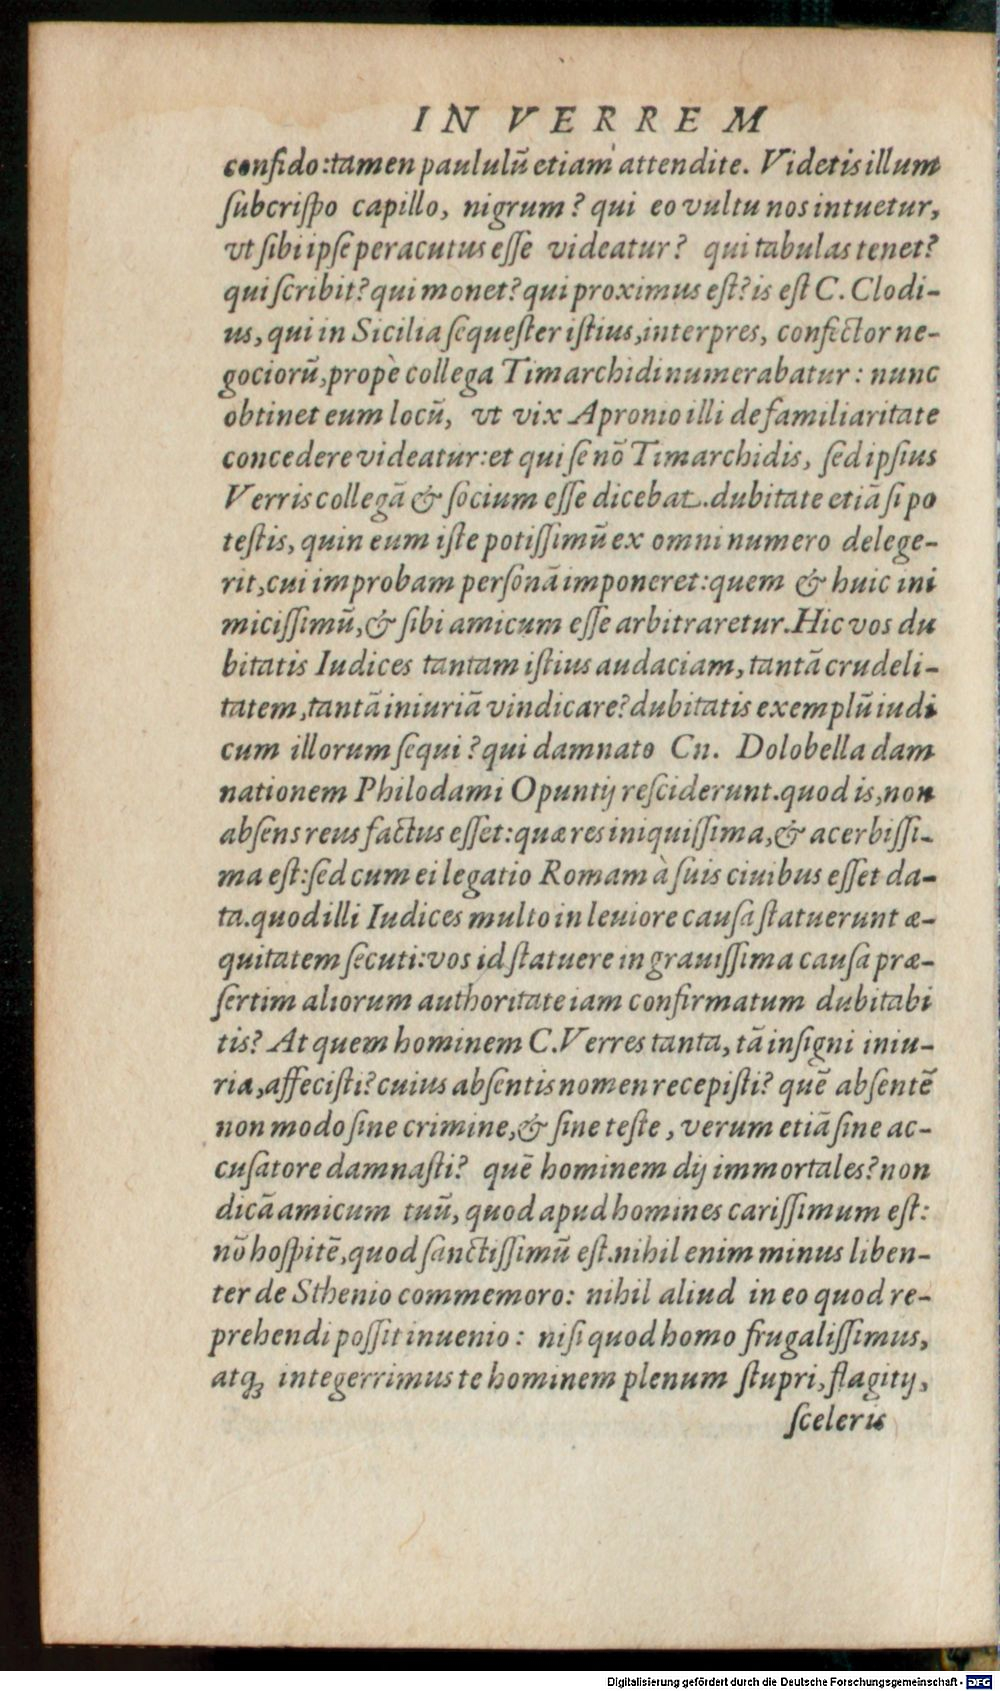 IN VERREM
confido:tamen paululū etiam attendite. Videtis illum
ſubcriſpo capillo, nigrum? qui eo vultu nos intuetur,
vt ſibi ipſe peracutus eſſe videatur? qui tabulas tenet?
qui ſcribit? qui monet? qui proximus eſt? is eſt C. Clodi-
us, qui in Sicilia ſequeſter iſtius, interpres, confector ne-
gociorū, propè collega Timarchidi numerabatur: nunc
obtinet eum locū, vt vix Apronio illi de familiaritate
concedere videatur: et qui ſe nō Timarchidis, ſed ipſius
Verris collegā & ſocium eſſe dicebat. dubitate etiā ſi po
teſtis, quin eum iſte potiſſimū ex omni numero delege-
rit, cui improbam perſonā imponeret: quem & huic ini
miciſſimū, & ſibi amicum eſſe arbitraretur. Hic vos du
bitatis Iudices tantam iſtius audaciam, tantā crudeli-
tatem, tantā iniuriā vindicare? dubitatis exemplū iudi
cum illorum ſequi? qui damnato Cn. Dolobella dam
nationem Philodami Opuntij reſciderunt. quod is, non
abſens reus factus eſſet: quæ res iniquiſſima, & acerbiſſi-
ma eſt: ſed cum ei legatio Romam à ſuis ciuibus eſſet da-
ta. quod illi Iudices multo in leuiore cauſa ſtatuerunt æ-
quitatem ſecuti: vos id ſtatuere in grauiſſima cauſa præ-
ſertim aliorum authoritate iam confirmatum dubitabi
tis? At quem hominem C. Verres tanta, tā inſigni iniu-
ria, affeciſti? cuius abſentis nomen recepiſti? quē abſentē
non modo ſine crimine, & ſine teſte, verum etiā ſine ac-
cuſatore damnaſti? quē hominem dij immortales? non
dicā amicum tuū, quod apud homines cariſſimum eſt:
nō hoſpitē, quod ſanctiſſimū eſt. nihil enim minus liben-
ter de Sthenio commemoro: nihil aliud in eo quod re-
prehendi poſſit inuenio: niſi quod homo frugaliſſimus,
atq; integerrimus te hominem plenum ſtupri, flagitij,
ſceleris
Digitalisierung gefördert durch die Deutsche Forschungsgemeinschaft - DFG